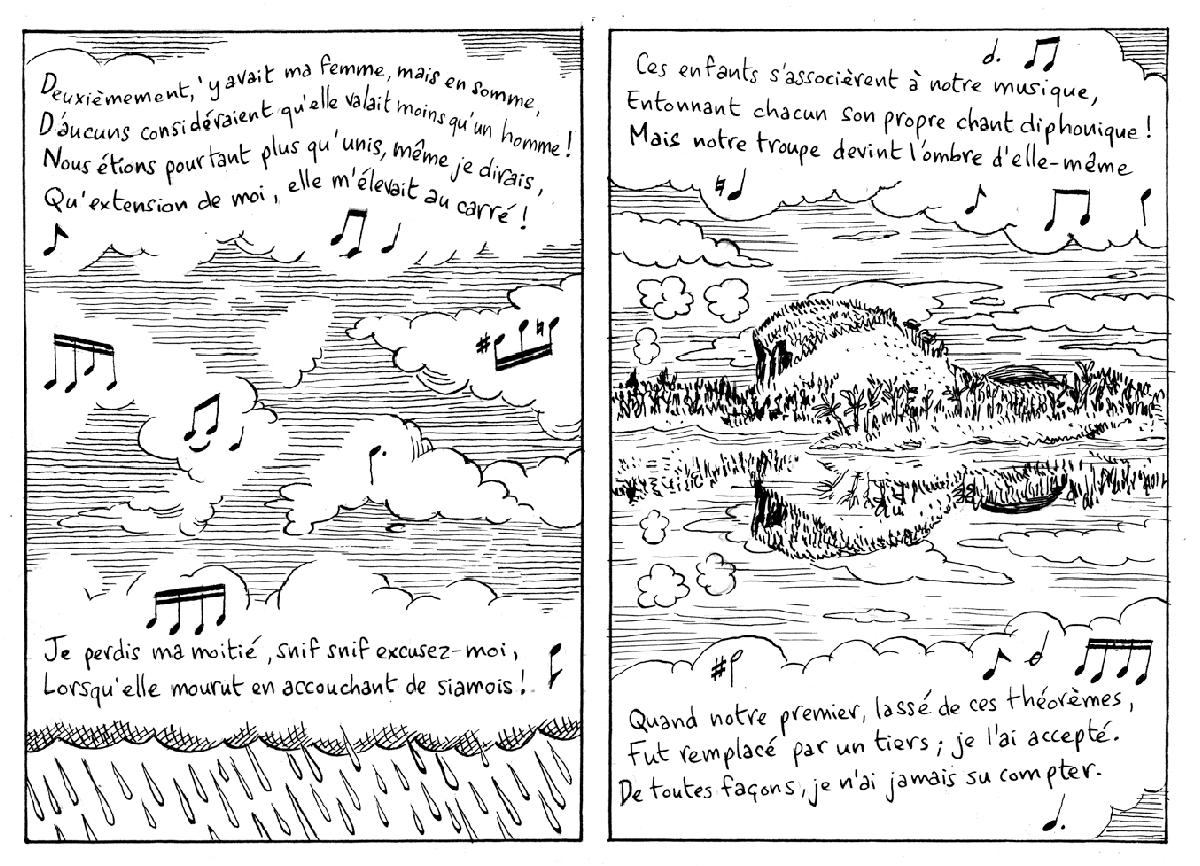 Deuxièmement, 'y avait ma femme, mais en somme,
D'aucuns considéraient qu'elle valait moins qu'un homme !
Nous étions pourtant plus qu'unis, même je dirais,
Qu'extension de moi, elle m'élevait au carré !
Je perdis ma moitié, snif snif excusez-moi,
Lorsqu'elle mourut en accouchant de siamois !
Ces enfants s'associèrent à notre musique,
Entonnant chacun son propre chant diphonique !
Mais notre troupe devint l'ombre d'elle-même
Quand notre premier, lassé de ces théorèmes,
Fut remplacé par un tiers ; je l'ai accepté.
De toutes façons, je n'ai jamais su compter.